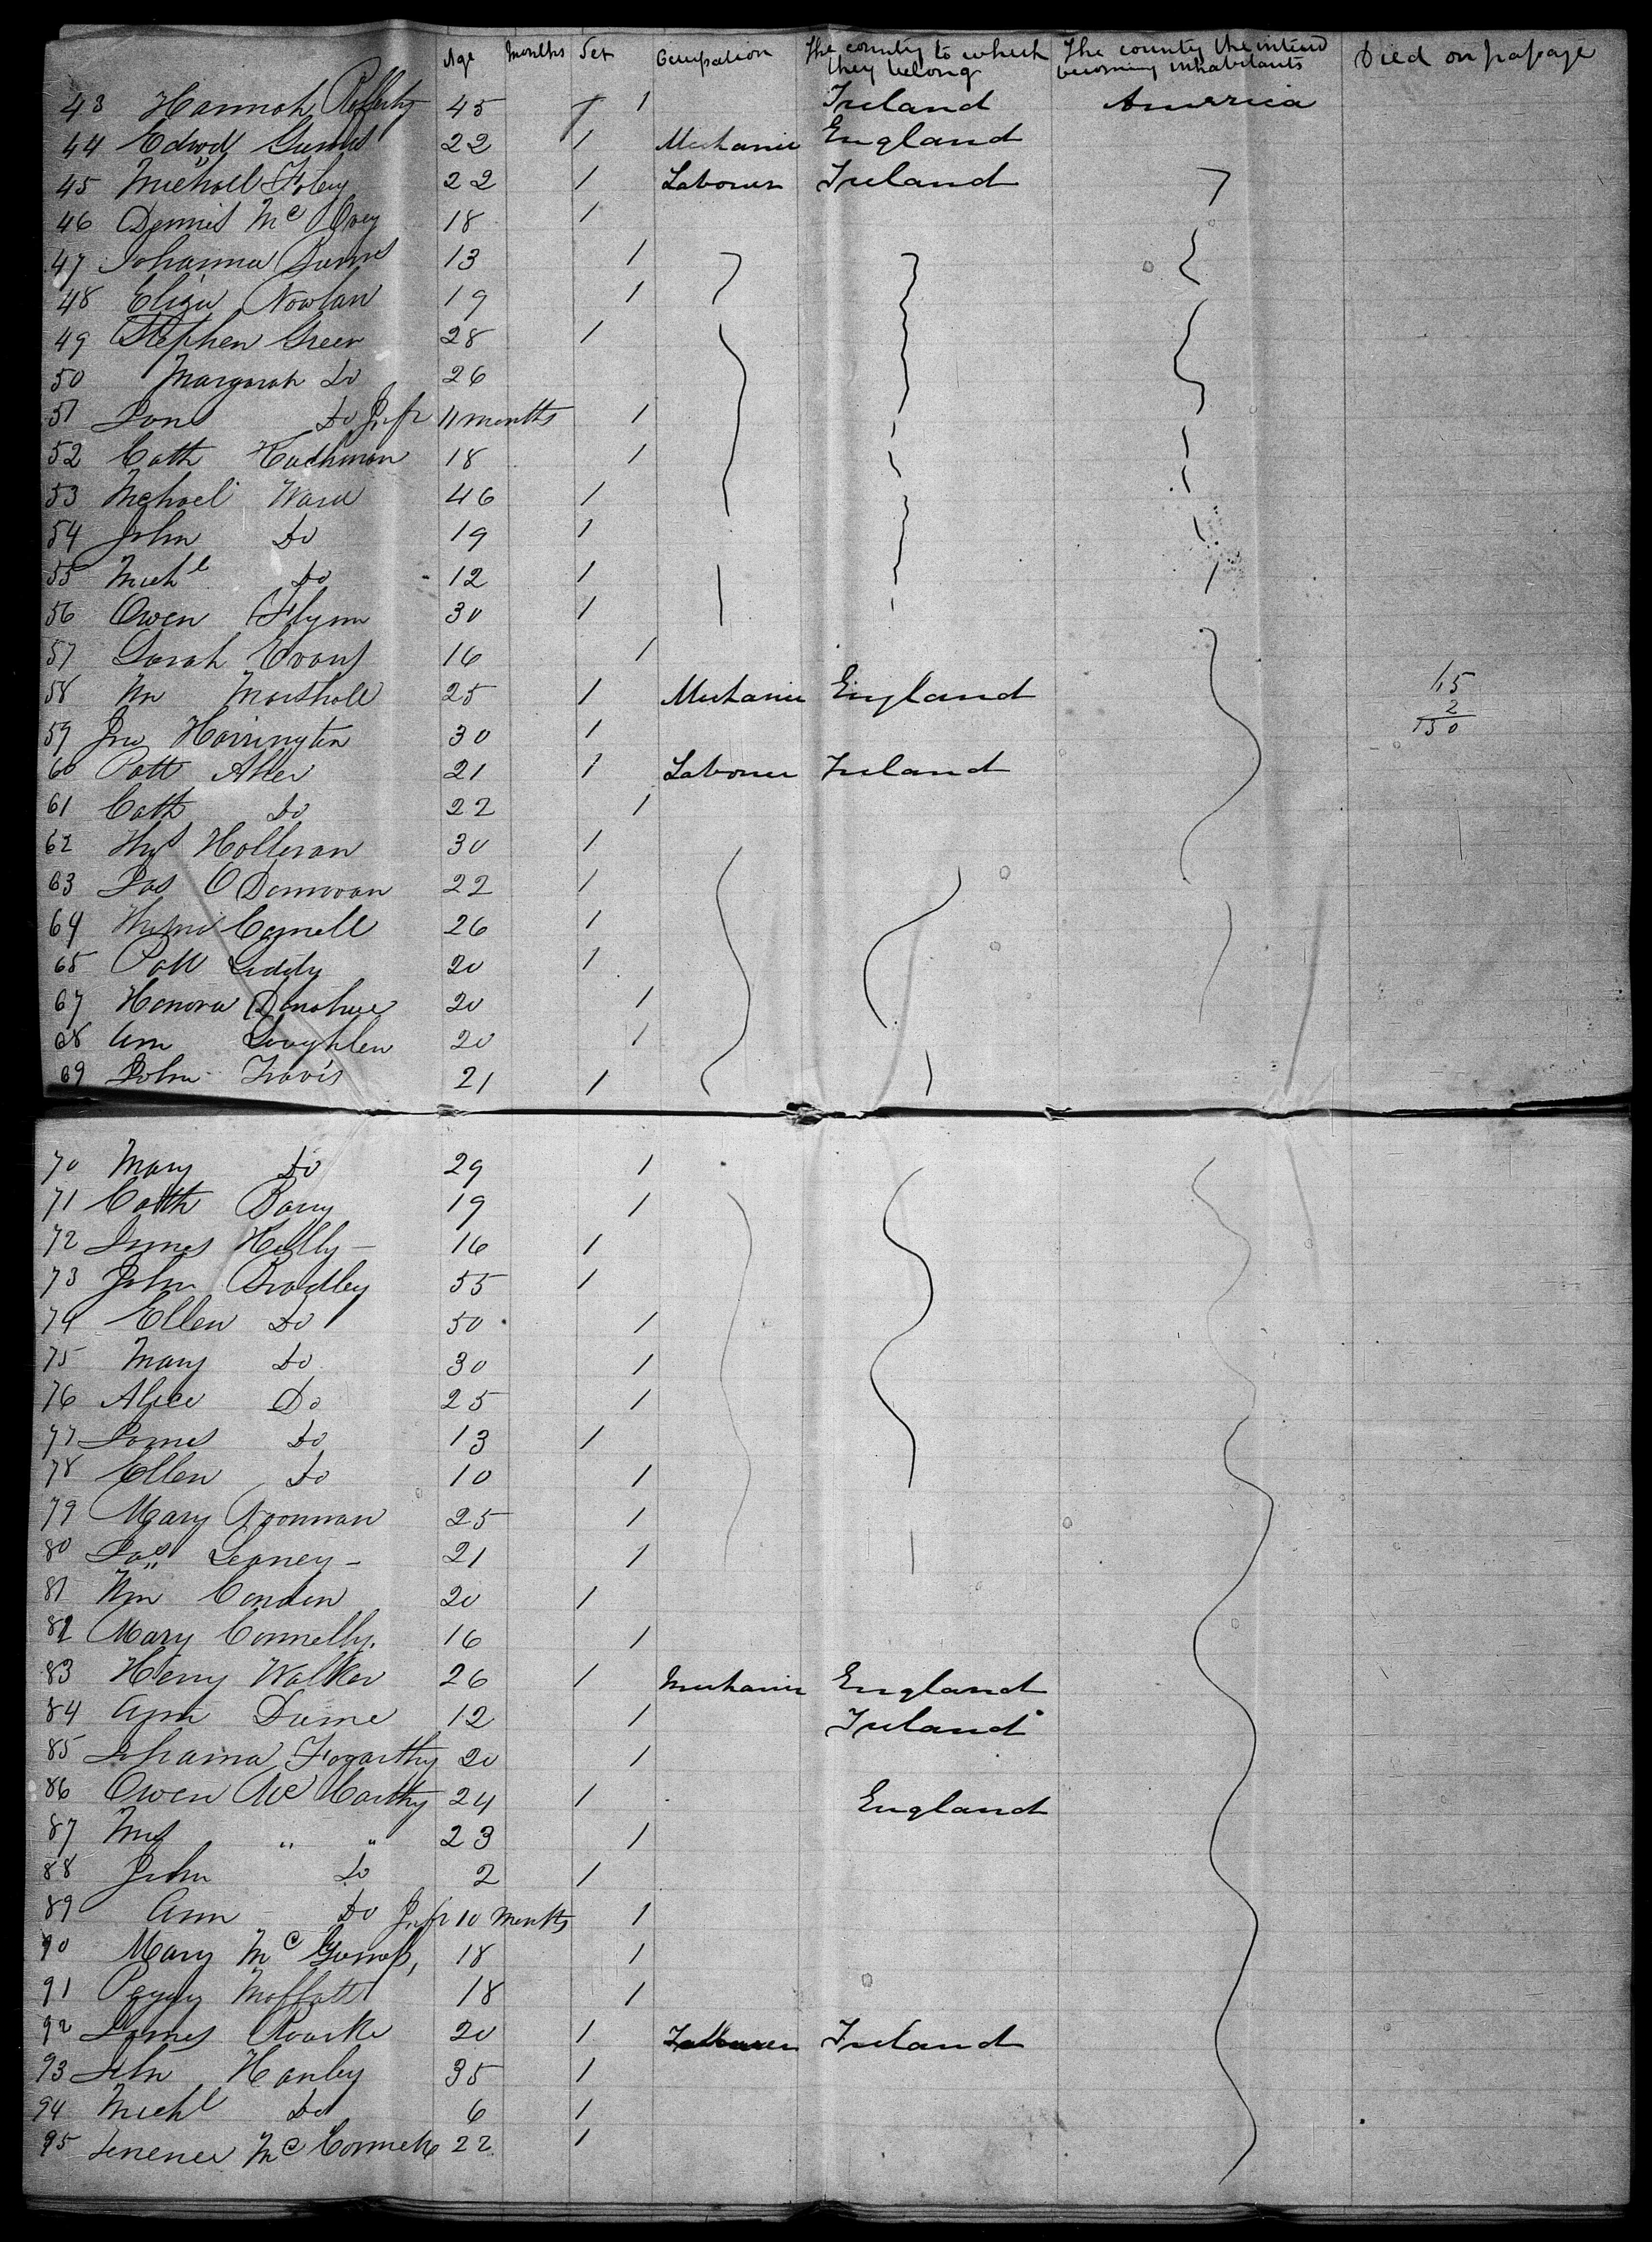 Age Months Sex Occupation The county to which they belong The county the intend becoming inhabitants Died on passage
43 Hannah Rafferty 45 1 Ireland America
44 Edwd 22 1 Mechanic England
45 Michael Foley 22 1 Labourer Ireland
46 Dennis Mc 18 1
47 Johanna Burns 13 1
48 Eliza Nowlan 19 1
49 Stephen Green 28 1
50 Margarah Do 26
51 Do Inft 11 months 1
52 Cath 18 1
53 Michael Ward 46 1
54 John Do 19 1
55 Michl Do 12 1
56 Owen Flynn 30 1
57 Sarah Evans 16 1
58 Wm Marshall 25 1 Mechanic England 15
2
150
59 Jno Harrington 30 1
60 Patt 21 1 Labourer Ireland
61 Cath Do 22 1
62 Thos Holleran 30 1
63 Jas O Donnovan 22 1
64 26 1
65 Patt Liddy 20 1
67 Honora Donohue 20 1
68 Ann Loughlen 20 1
69 John Travis 21 1
70 Mary Do 29 1
71 Cath Barry 19 1
72 James Kelly - 16 1
73 John Bradley 55 1
74 Ellen Do 50 1
75 Mary Do 30 1
76 Alice Do 25 1
77 James Do 13 1
78 Ellen Do 10 1
79 Mary Noonnan 25 1
80 Jas - 21 1
81 Wm Condon 20 1
82 Mary Connelly. 16 1
83 Henry Walker 26 1 Mechanic England
84 Ann Dunne 12 1 Ireland
85 Johanna Fogarthy 20 1
86 Owen Mc Carthy 24 1 England
87 Mrs " " 23 1
88 John Do 2 1
89 Ann Do Inft 10 months 1
90 Mary Mc 18 1
91 Peggy Moffatt 18 1
92 James Rourke 20 1 Labourer Ireland
93 John Hanley 35 1
94 Michl Do 6 1
95 Terence Mc Connell 22 1